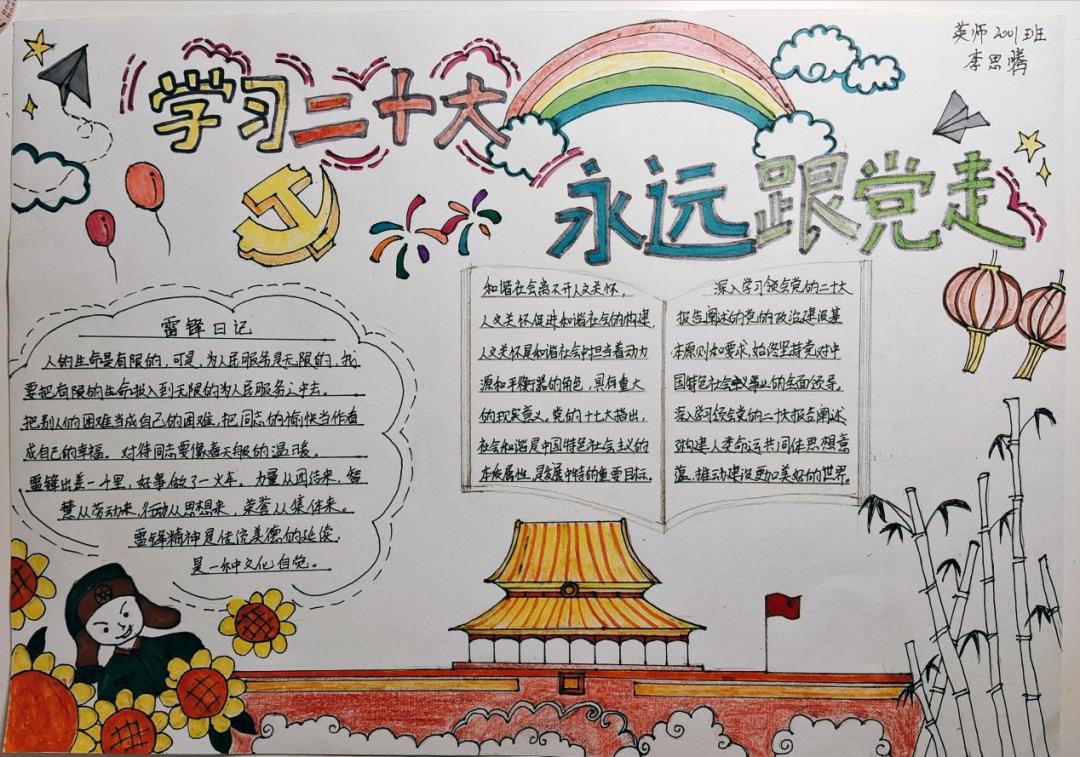 英师2001班
李思腾
学习二十大
永远跟党走
雷锋日记
人的生命是有限的,可是,为人民服务是无限的,我
要把有限的生命投入到无限的为人民服务之中去。
把别人的困难当成自己的困难,把同志的愉快当作看
成自己的幸福。对待同志要像春天般的温暖。
雷锋出差一千里,好事做了一火车。力量从团结来,智
慧从劳动来,行动从思想来,荣誉从集体来。
雷锋精神是传统美德的延续,
是一种文化自觉。
和谐社会离不开人文关怀,
人文关怀促进和谐社会的构建,
人文关怀是和谐社会中担当着动力
源和平衡器的角色,具有重大
的现实意义。党的十七大指出,
社会和谐是中国特色社会主义的
本质属性,是发展中特的重要目标。
深入学习领会党的二十大
报告阐述的党的政治建设基
本原则和要求,始终坚持党对中
国特色社会主义事业的全面领导。
深入学习领会党的二十大报告阐述
对构建人类命运共同体思想意
蕴,推动建设更加美好的世界。